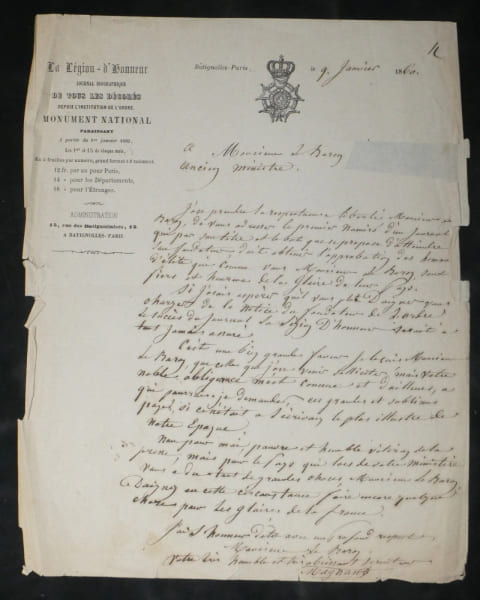 La Légion-d'Honneur
JOURNAL BIOGRAPHIQUE
DE TOUS LES DÉCORÉS
DEPUIS L'INSTITUTION DE L'ORDRE.
MONUMENT NATIONAL
PARAISSANT
à partir du 1er janvier
Les 1er et 15 de chaque mois,
12 fr. par an pour Paris,
14 » pour les Départements,
16 » pour l'Étranger.
ADMINISTRATION
rue des Batignollaises,
A BATIGNOLLES-PARIS
Batignolles-Paris, 9. Janvier 186
A Monsieur le Baron
Ancien Ministre.
J'ose prendre la respectueuse liberté Monsieur le
Baron, de vous adresser le premier Numéro d'un Journal
qui par son titre et le but que se propose d'atteindre
son fondateur doit obtenir l'approbation des hommes
d'élite qui comme vous Monsieur le Baron, sont
fiers et heureux de la Gloire de leur Pays.
Si j'osais espérer qu'il vous plut Daigner vous
charger de la Notice du fondateur de l'ordre
le succès du Journal La Légion D'honneur serait à
tout jamais assuré.
C'est une bien grande faveur je le sais Monsieur
le Baron, que celle que j'ose venir solliciter, mais votre
noble obligeance m'est connue et d'ailleurs, à
qui pourrais-je demander, ces grandes et sublimes
pages, si ce n'était à l'écrivain le plus illustre de
Notre Epoque.
Non pour moi pauvre et humble vétéran de la
presse, mais pour le Pays qui lors de votre Ministère
vous a dû tant de grandes choses, Monsieur le Baron
Daignez en cette circonstance faire encore quelque
chose pour les gloires de la france.
J'ai l'honneur d'être avec un profond respect
Monsieur le Baron
Votre très humble et très obéissant serviteur